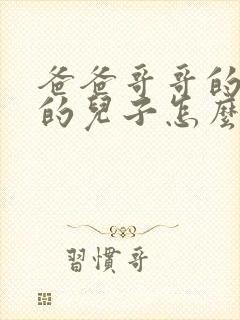 爸爸哥哥的
的兒子怎麼
習慣哥